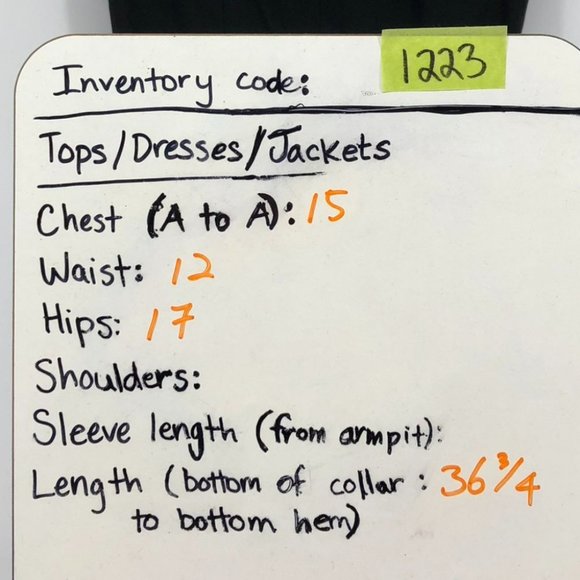 Inventory code: 1223
Tops/Dresses/Jackets
Chest (A to A): 15
Waist: 12
Hips: 17
Shoulders:
Sleeve length (from armpit):
Length (bottom of collar : 36 3/4
to bottom hem)